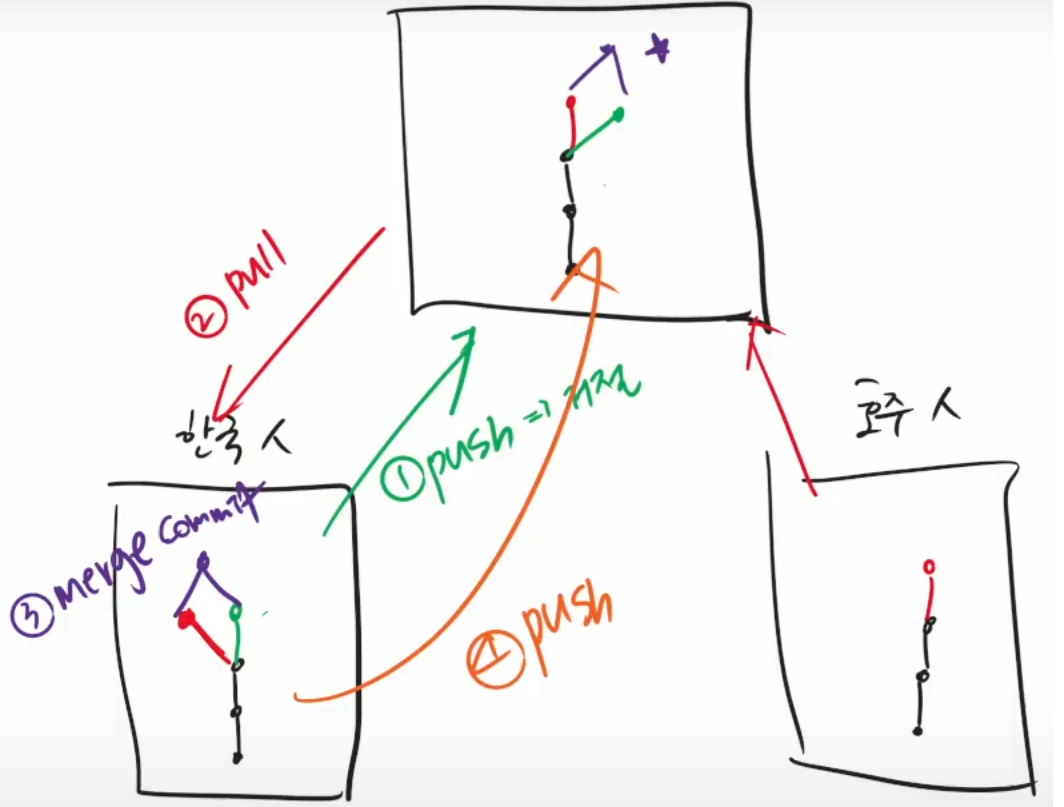 ② pull
한국 人
호주 人
① push => 거절
③ merge commit
④ push